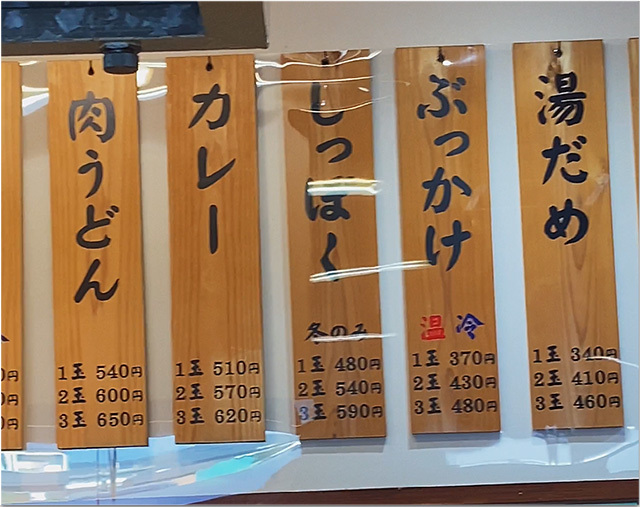 湯だめ
1玉 340円
2玉 410円
3玉 460円
ぶっかけ
温 冷
1玉 370円
2玉 430円
3玉 480円
しっぽく
冬のみ
1玉 480円
2玉 540円
3玉 590円
カレー
1玉 510円
2玉 570円
3玉 620円
肉うどん
1玉 540円
2玉 600円
3玉 650円
0円
0円
0円